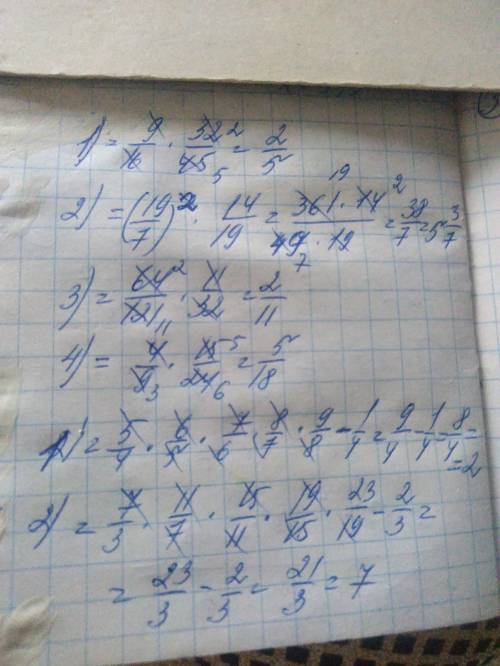 1) = 9/16 · 32 2/45 5 = 2/5
2) = (19/7)² · 14/19 = 361 19 · 14 2/49 7 · 19 = 38/7 = 5 3/7
3) = 64 2/121 11 · 11/32 = 2/11
4) = 4/9 3 · 15 5/24 6 = 5/18
1) = 5/4 · 6/5 · 7/6 · 8/7 · 9/8 - 1/4 = 9/4 - 1/4 = 8/4 =
= 2
2) = 7/3 · 11/7 · 15/11 · 19/15 · 23/19 - 2/3 =
= 23/3 - 2/3 = 21/3 = 7